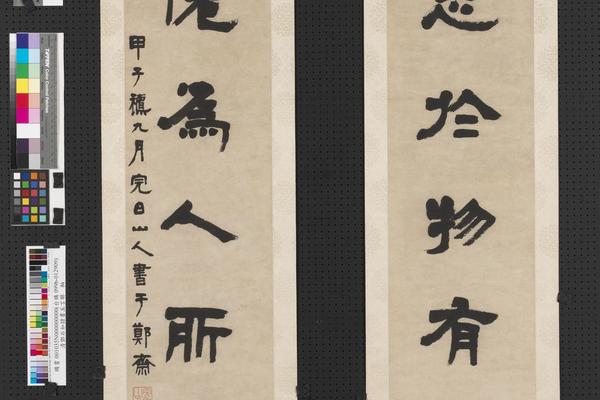 於物有
為人所
甲子穐九月完白山人書于鄭齋